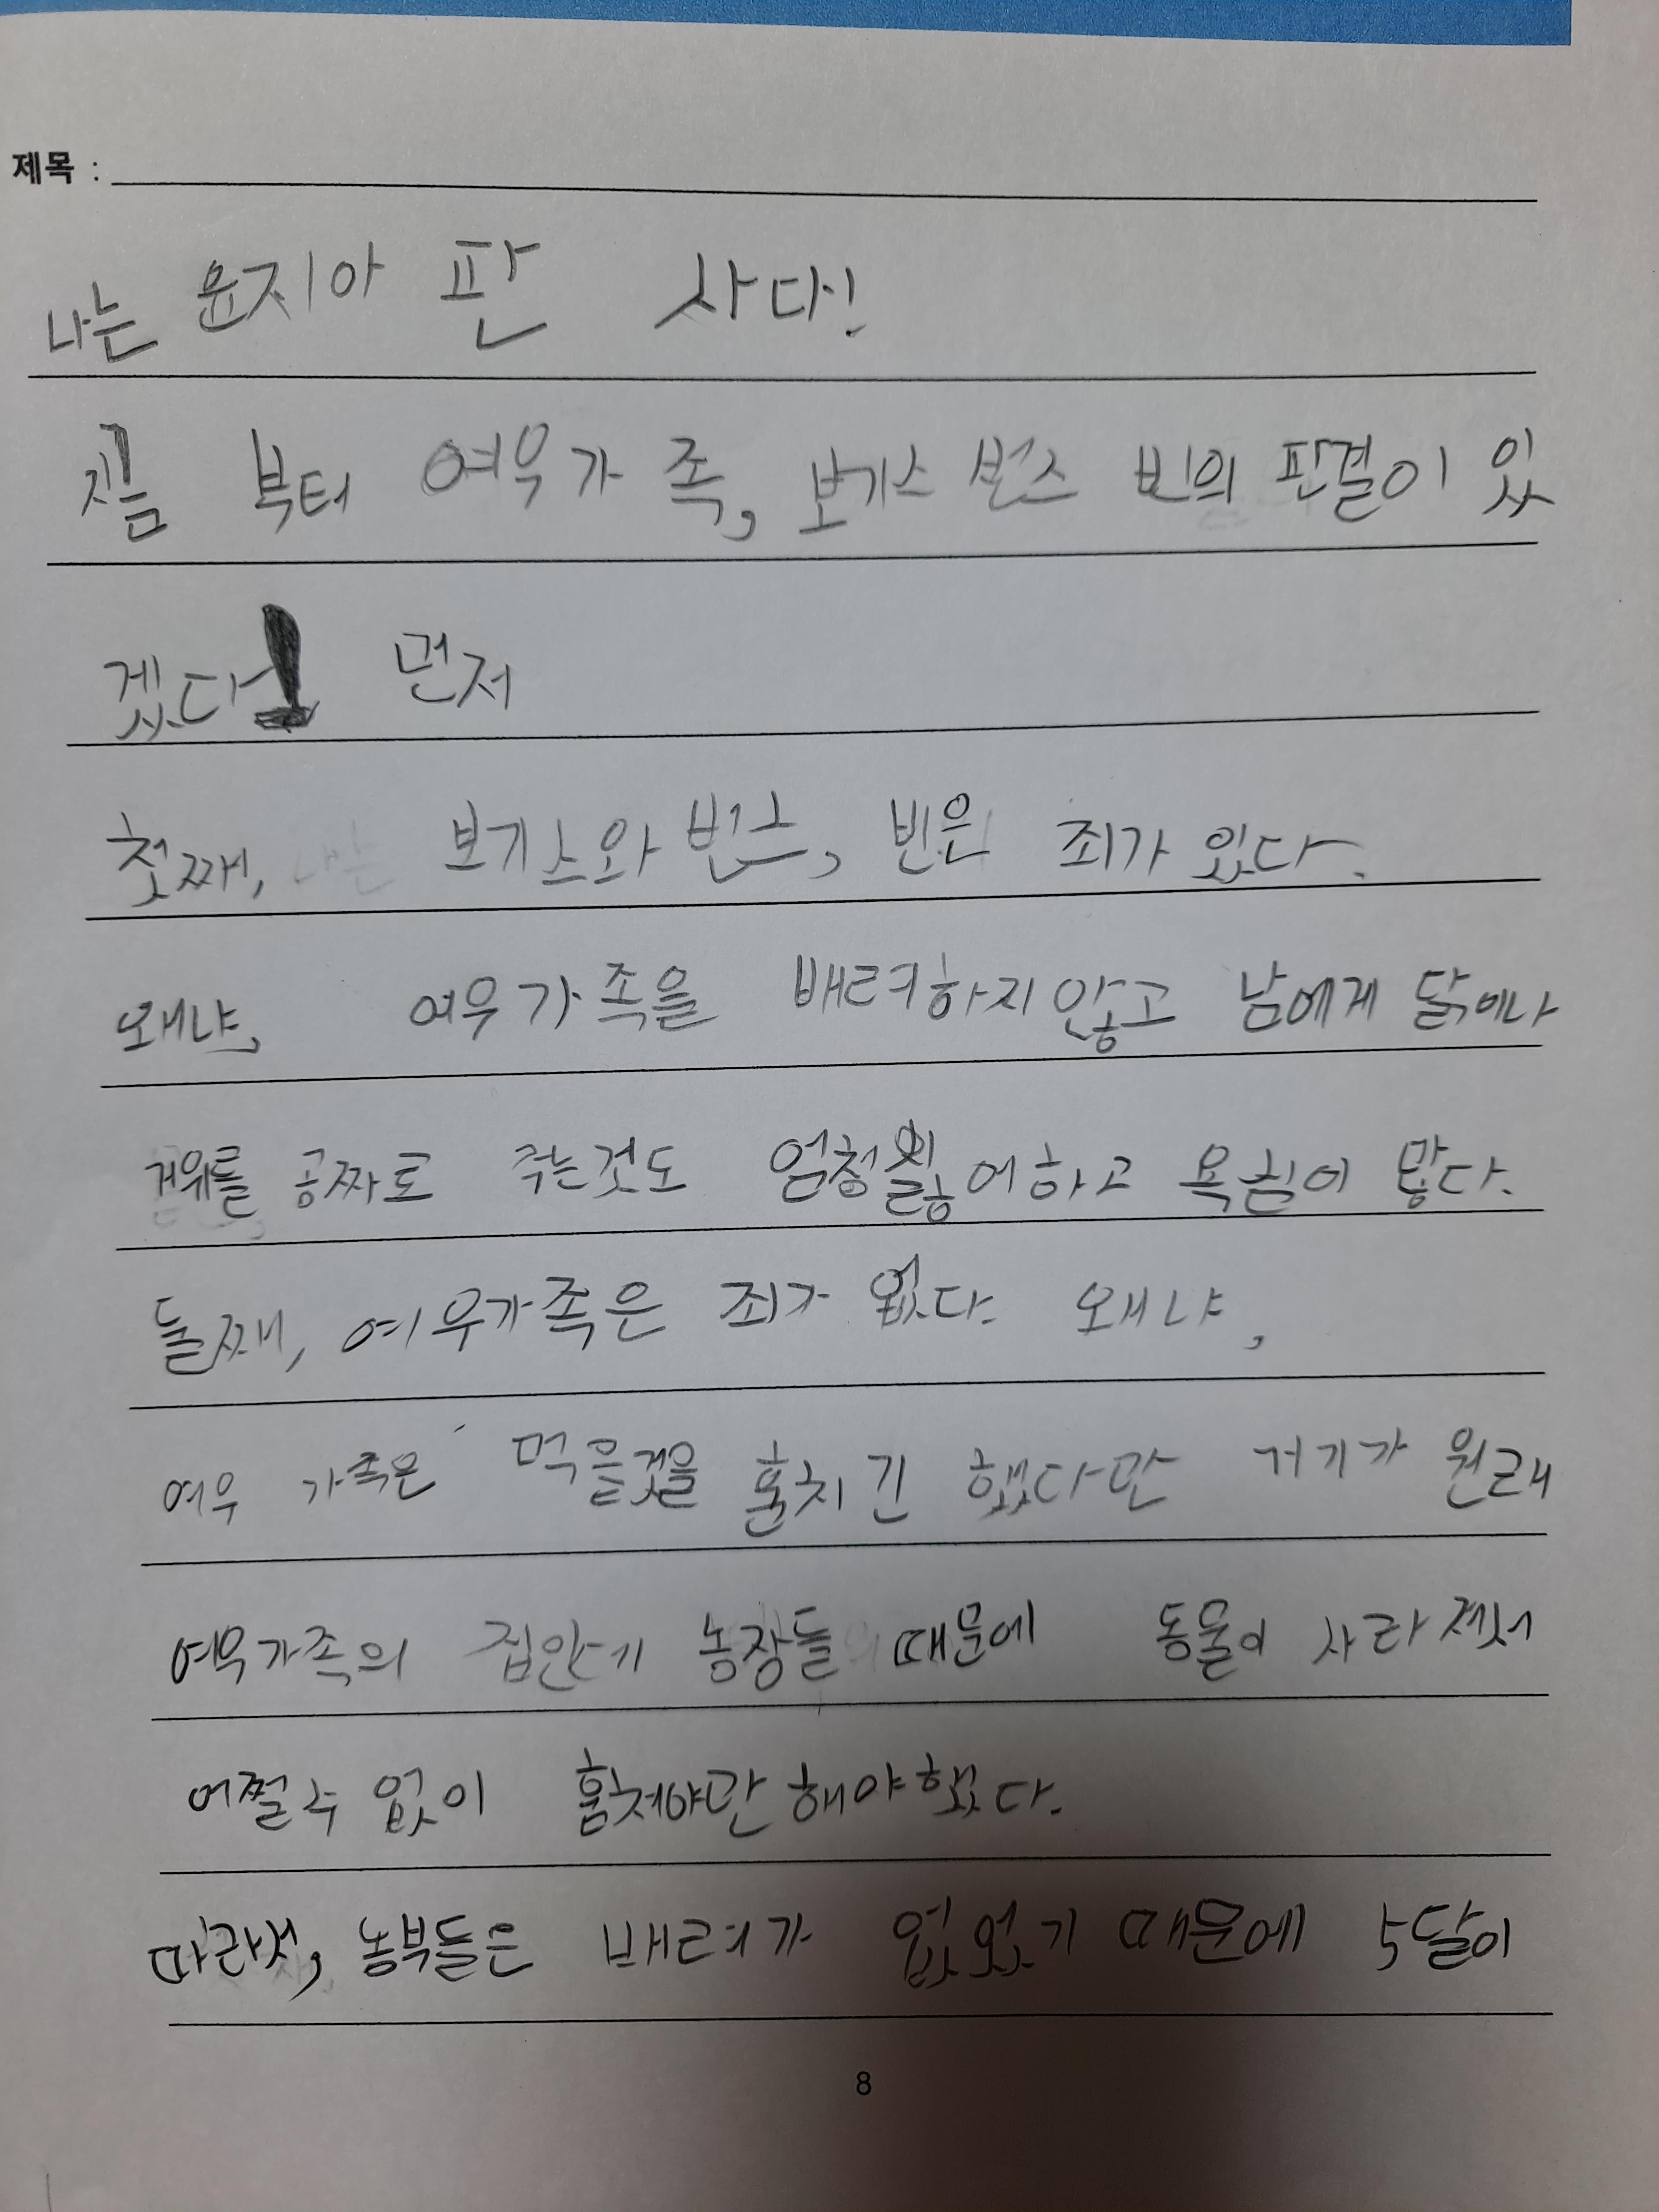 제목 :
나는 윤지아 판 사다!
지금 부터 여우가 족, 보기스 번스 빈의 판결이 있
겠다! 먼저
첫째, 보기스와 번스, 빈은 죄가 있다.
왜냐, 여우가 족을 배려하지 않고 남에게 닭이나
거위를 공짜로 주는것도 엄청 싫어하고 욕심이 많다.
둘째, 여우가족은 죄가 없다. 왜냐,
여우 가족은 먹을것을 훔치긴 했다만 거기가 원래
여우가족의 농장들 때문에 동물이 사라져서
어쩔 수 없이 훔쳐야만 해야했다.
따라서, 농부들은 배려가 없었기 때문에 5달이
8